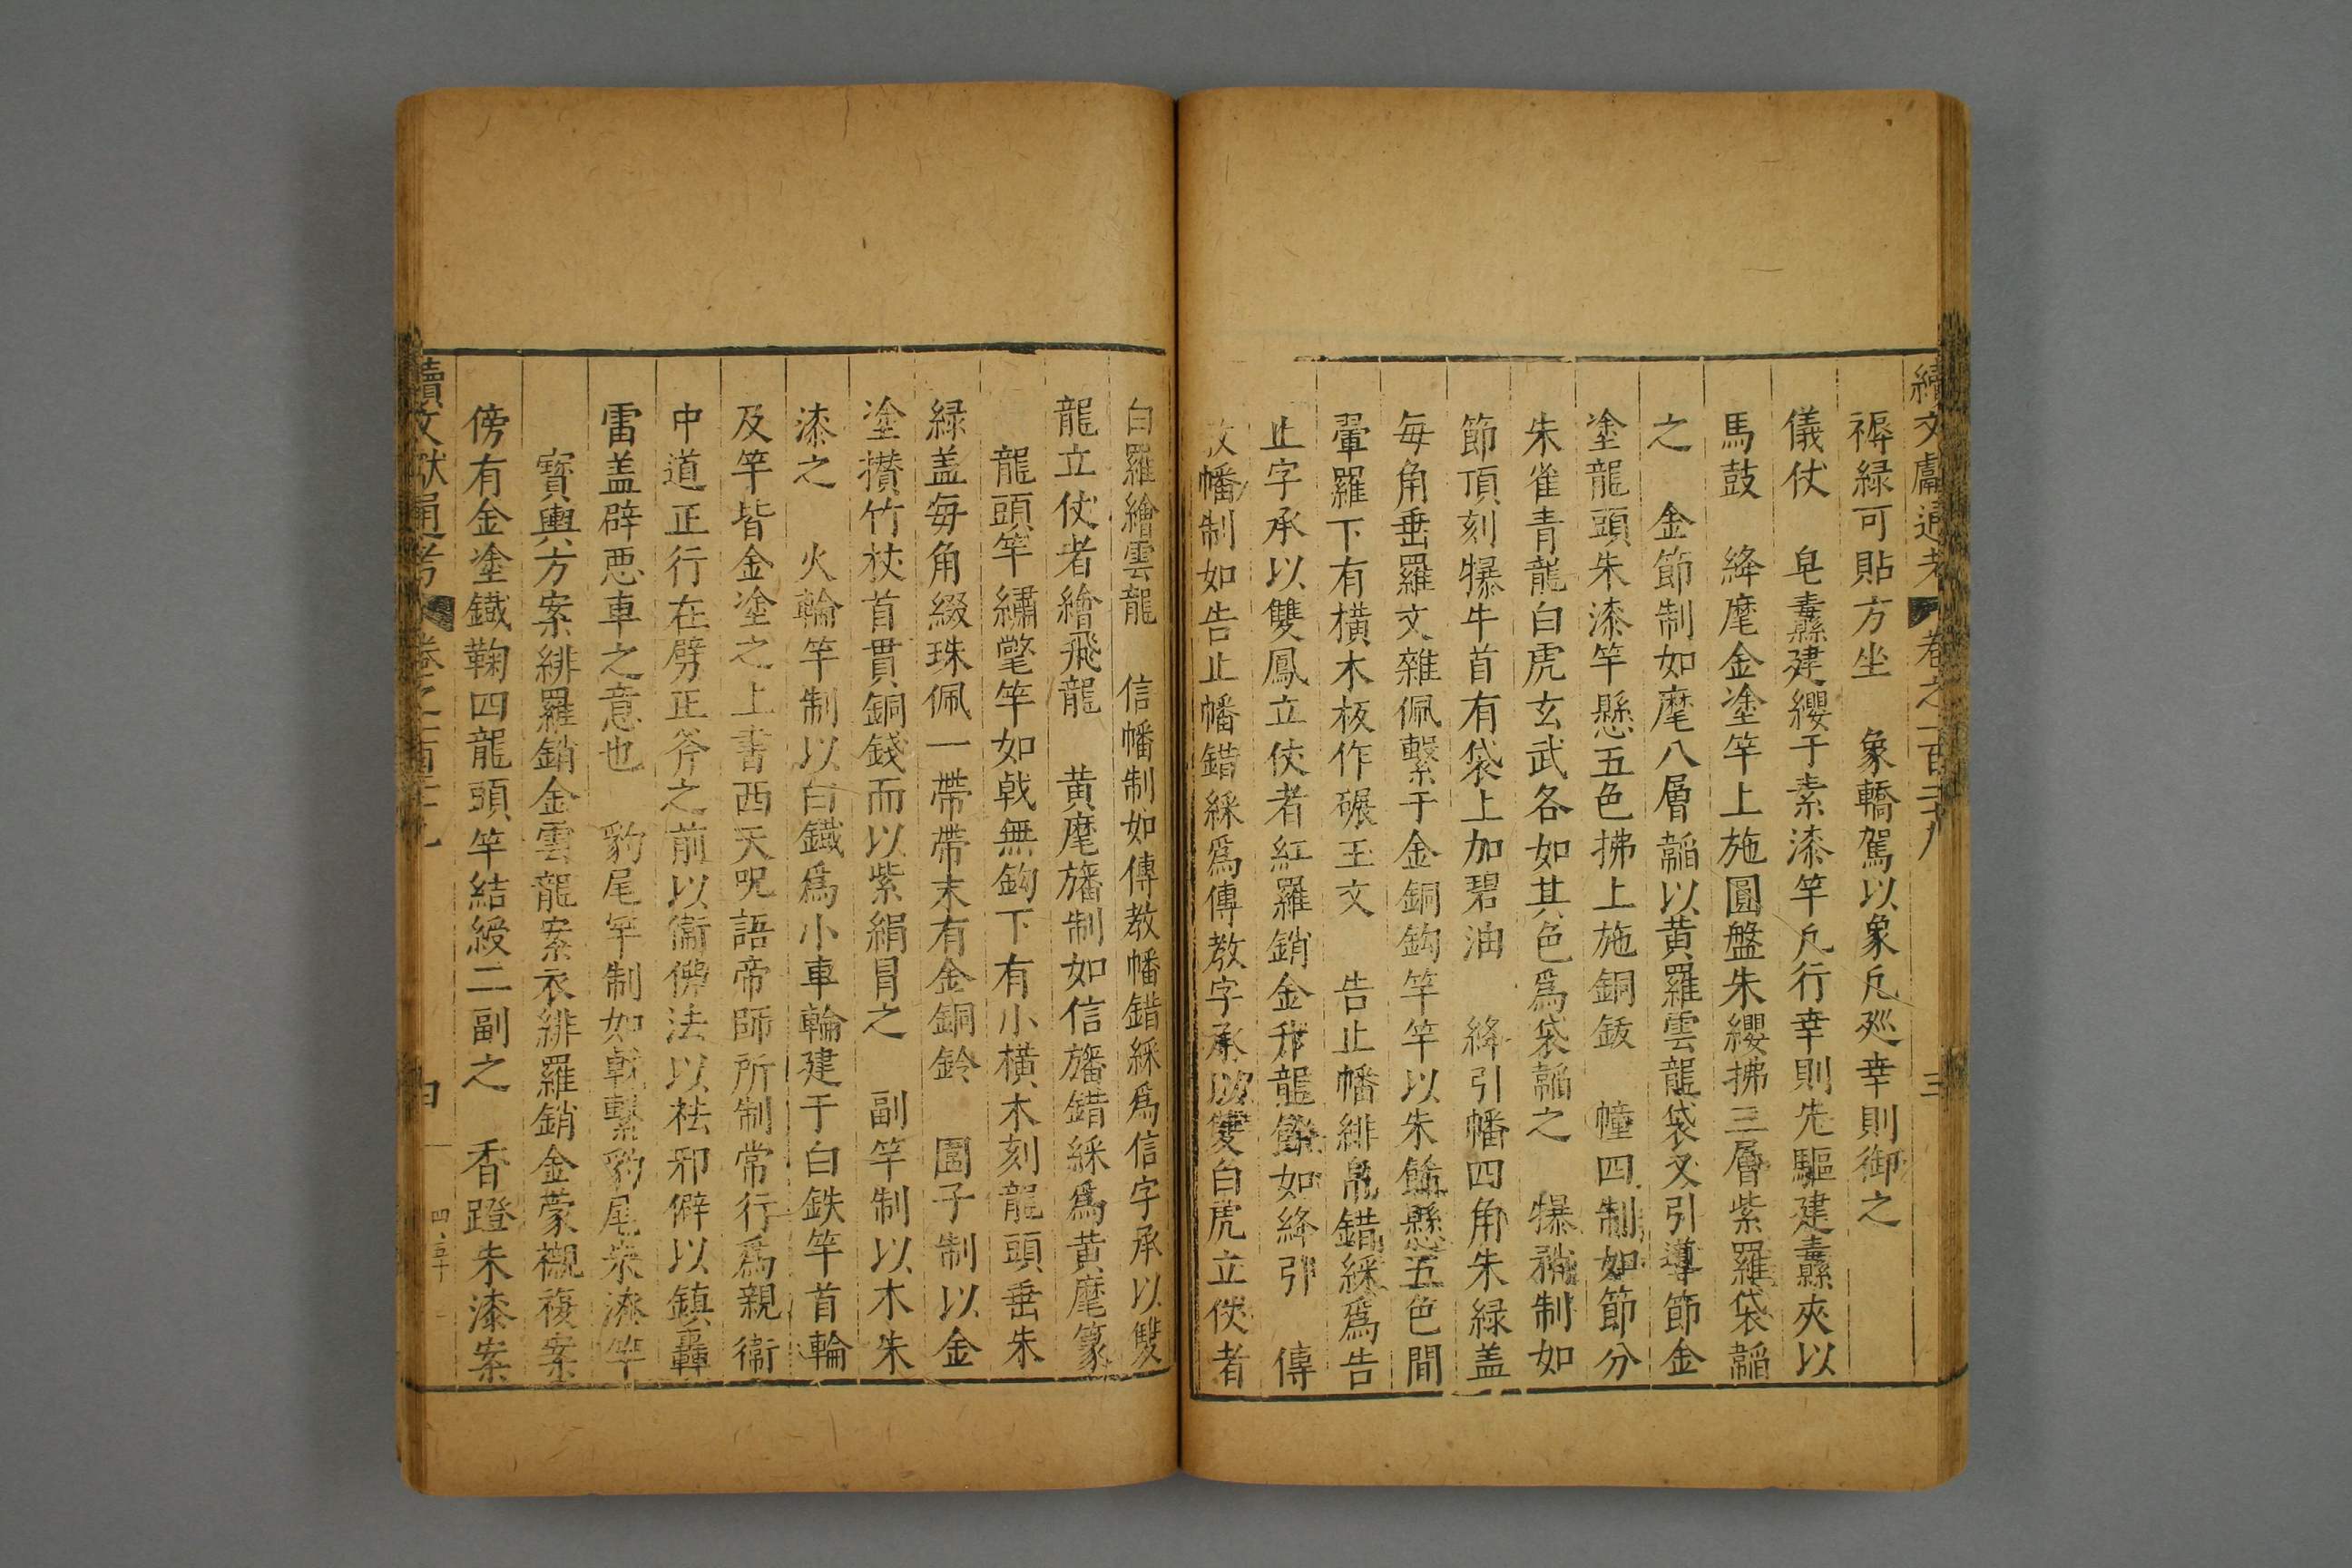 續文獻通考 卷之一百二十九 三
褥緑可貼方坐 象轎駕以象凢廵幸則御之
儀仗 皂纛建纓于素漆竿凢行幸則先驅建纛夾以
馬鼓 絳麾金塗竿上施圓盤朱纓拂三層紫羅袋韜
之 金節制如麾八層韜以黄羅雲龍袋又引導節金
塗龍頭朱漆竿懸五色拂上施銅鈸 幢四制如節分
朱雀青龍白虎玄武各如其色爲袋韜之 犦矟制如
節頂刻犦牛首有袋上加碧油 絳引幡四角朱緑盖
每角垂羅文雜佩繫于金銅鈎竿竿以朱餙懸五色間
翬羅下有橫木板作碾玉文 告止幡緋帛錯綵爲告
止字承以雙鳳立仗者紅羅銷金升龍餘如絳引 傳
教幡制如告止幡錯綵爲傳教字承以雙白虎立仗者
白羅繪雲龍 信幡制如傳教幡錯綵爲信字承以雙
龍立仗者繪飛龍 黄麾旛制如信旛錯綵爲黄麾篆
龍頭竿繡氅竿如戟無鈎下有小橫木刻龍頭垂朱
緑盖每角綴珠佩一帶帶末有金銅鈴 圍子制以金
塗攢竹杖首貫銅錢而以紫絹冐之 副竿制以木朱
漆之 火輪竿制以白鐵爲小車輪建于白鉄竿首輪
及竿皆金塗之上書西天呪語帝師所制常行爲親衛
中道正行在劈正斧之前以衞佛法以祛邪僻以鎮轟
雷盖辟悪車之意也 豹尾竿制如戟繫豹尾朱漆竿
寳輿方案緋羅銷金雲龍案衣緋羅銷金蒙襯複案
傍有金塗鐵鞠四龍頭竿結綬二副之 香蹬朱漆案
續文獻通考 卷之一百二十九